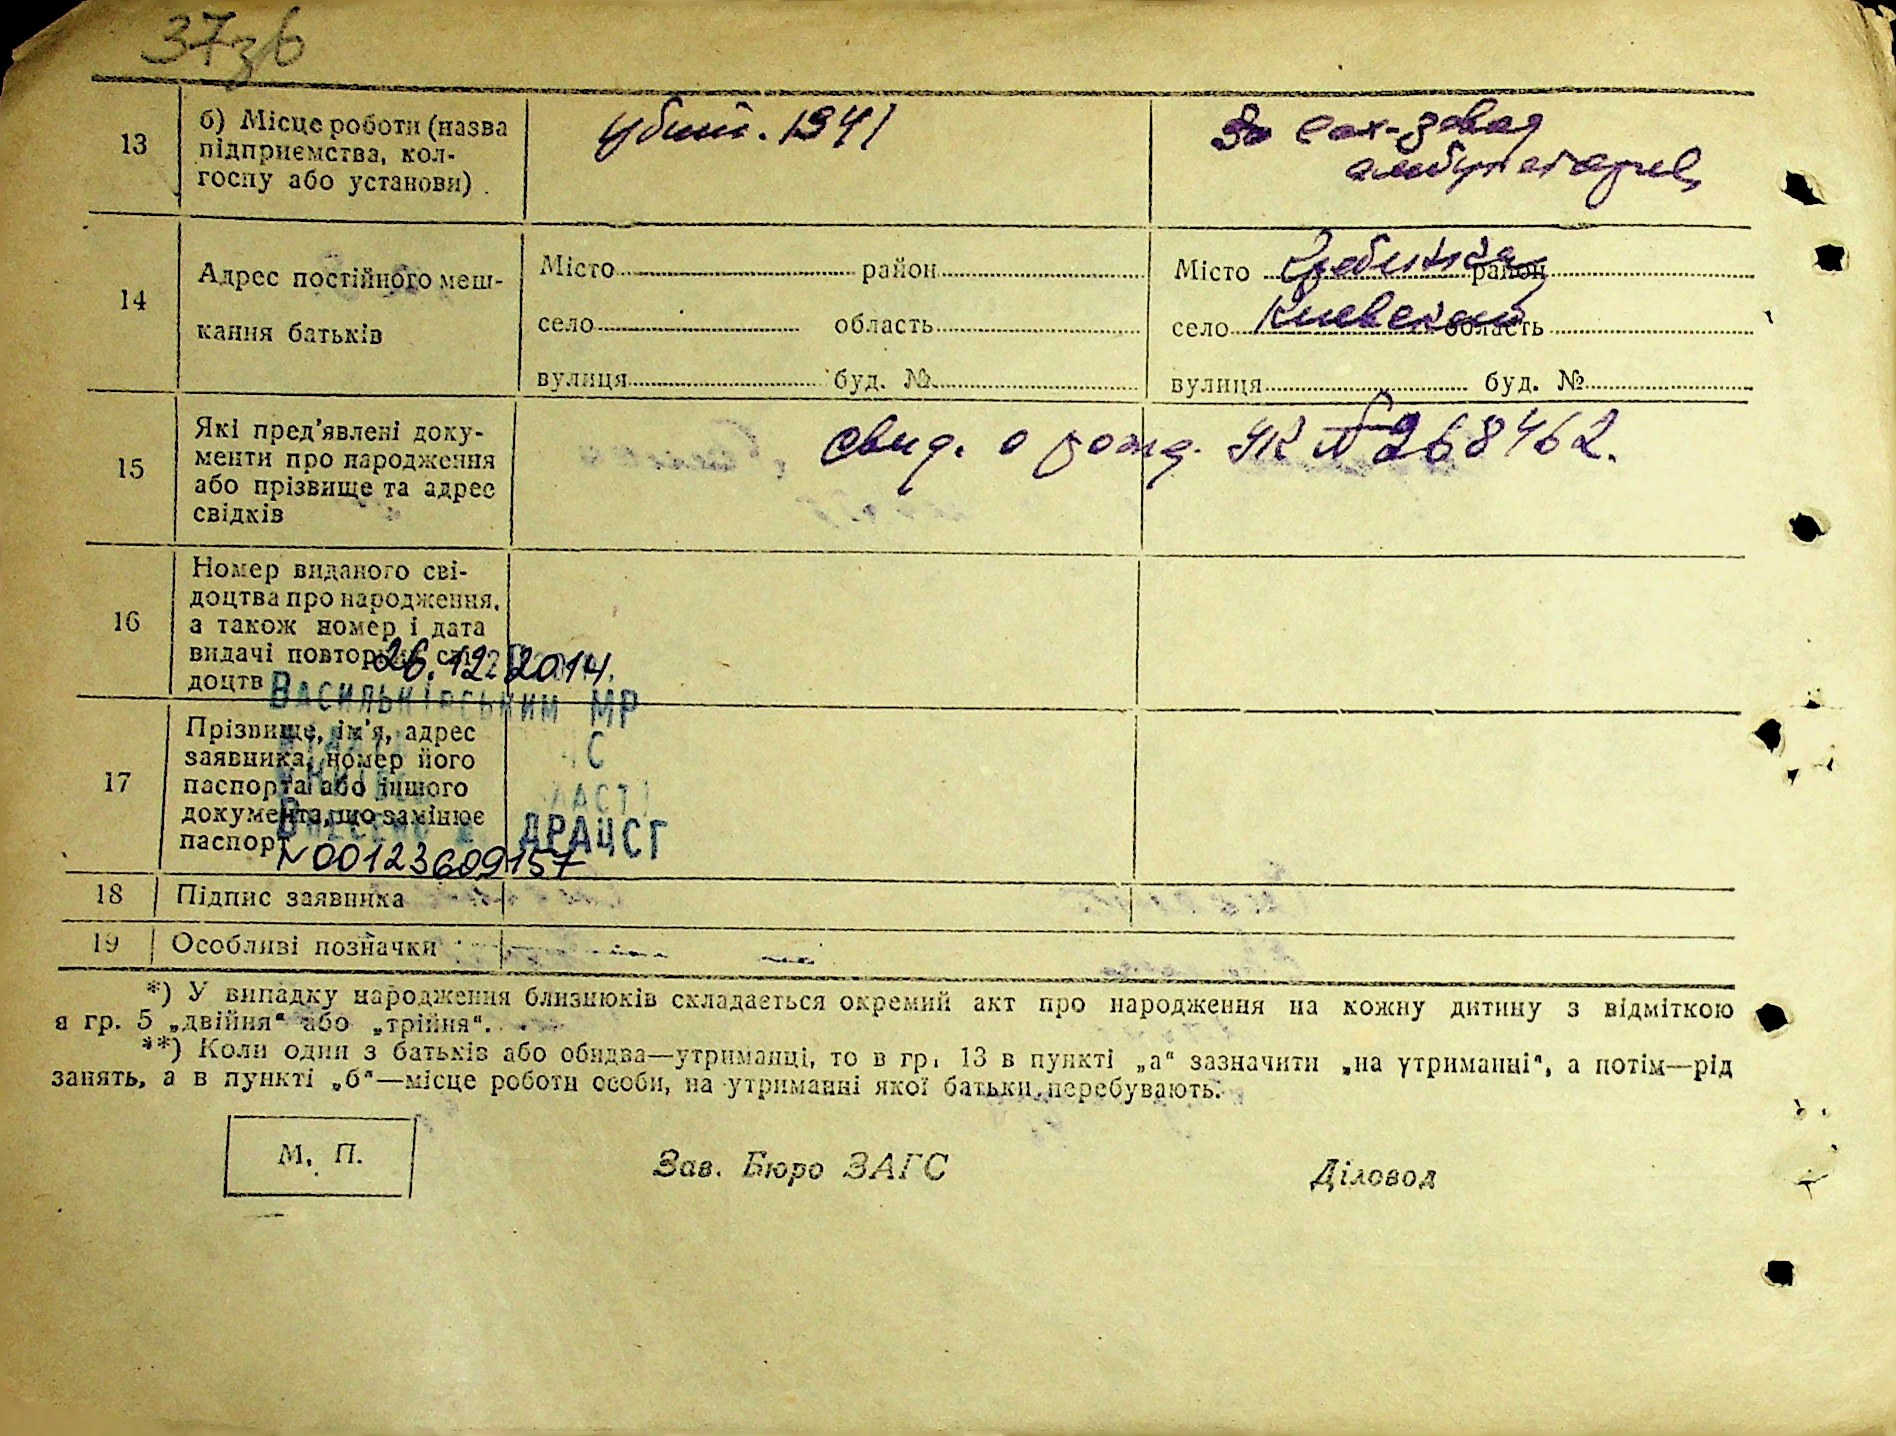 37зв
13
б) Місце роботи (назва
підприємства, кол-
госпу або установи).
убит. 1941
Сах-завод
амбулатория
14
Адрес постійного меш-
кання батьків
Місто район
село область
вулиця буд. №
Місто Гребінка район
село Киевской область
вулиця буд. №
15
Які пред'явлені доку-
менти про народження
або прізвище та адрес
свідків
свид. о рожд. УК № 268462.
16
Номер виданого сві-
доцтва про народження,
а також номер і дата
видачі повторних сві-
доцтв
26.12.2014.
Васильківським МР
17
Прізвище, ім'я, адрес
заявника, номер його
паспорта або іншого
документа, що замінює
паспорт
ДРАЦСГ
N00123609157
18 Підпис заявника
19 Особливі позначки
*) У випадку народження близнюків складається окремий акт про народження на кожну дитину з відміткою
в гр. 5 „двійня“ або „трійня“.
**) Коли один з батьків або обидва—утриманці, то в гр. 13 в пункті „а“ зазначити „на утриманні“, а потім—рід
занять, а в пункті „б“—місце роботи особи, на утриманні якої батьки перебувають.
М. П.
Зав. Бюро ЗАГС
Діловод